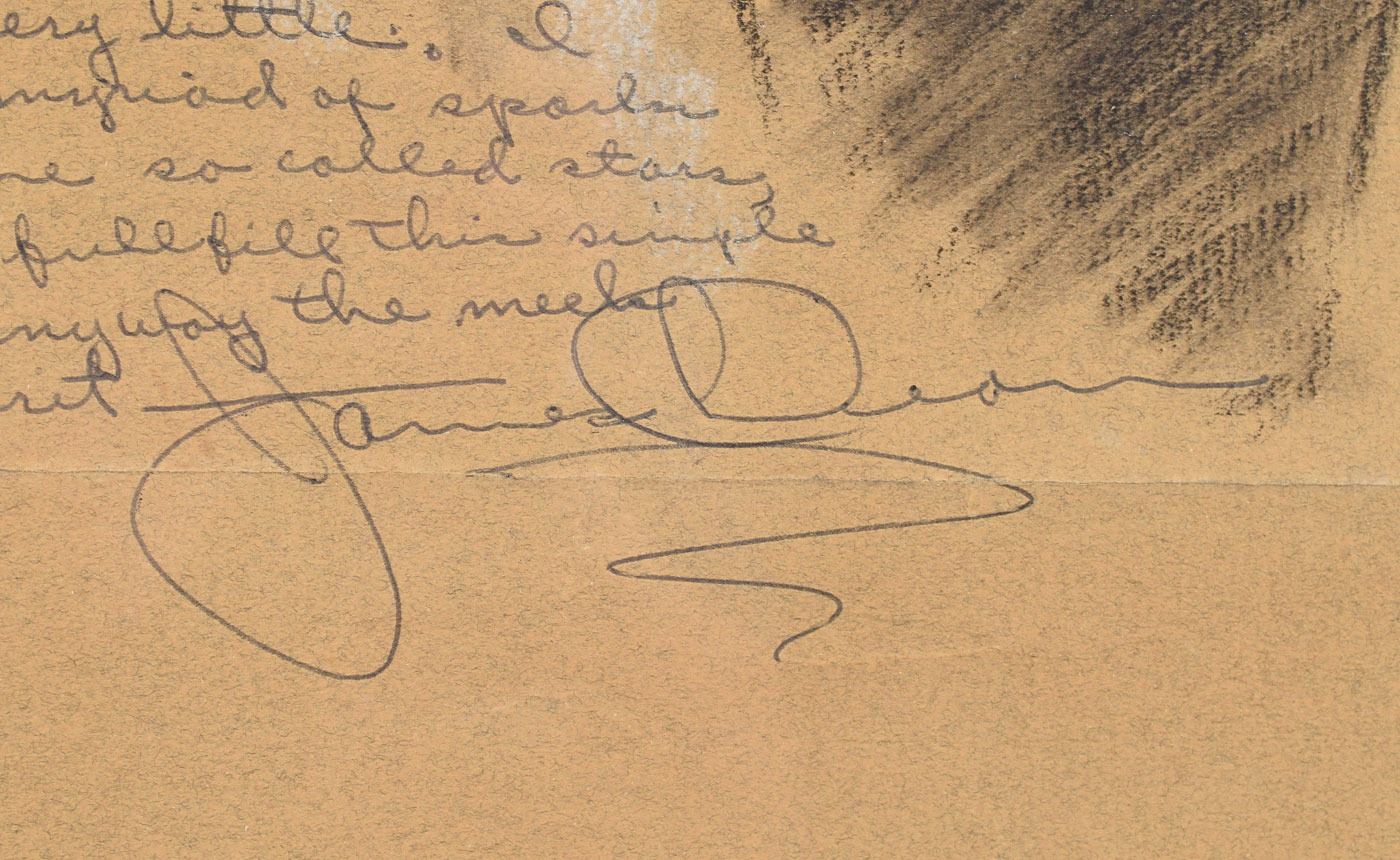 ery little. I
myriad of sports
ne so called stars,
fullfill this simple
anyway the meek
rit James Dean